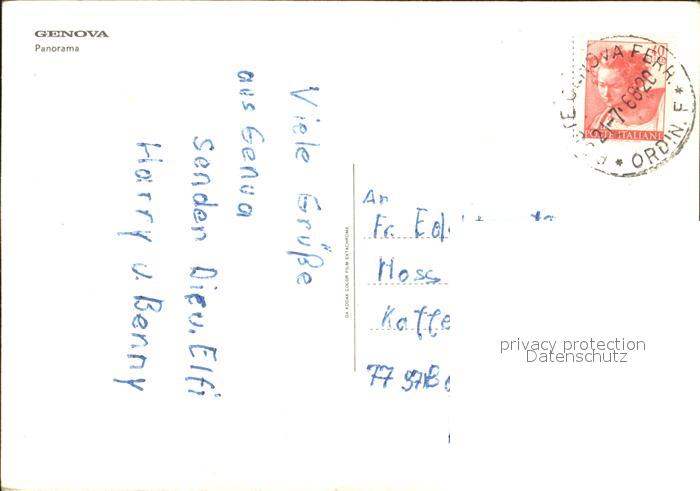 GENOVA
Panorama
Viele Grüße
aus Genua
senden Dieu. Elfi
Harry u. Benny
DA KODAK COLOR FILM EXTACHROME
An
Fr.
Moss
Kaffe
77
40
POSTE ITALIANE
GENOVA FERR.
ORDIN. F
privacy protection
Datenschutz